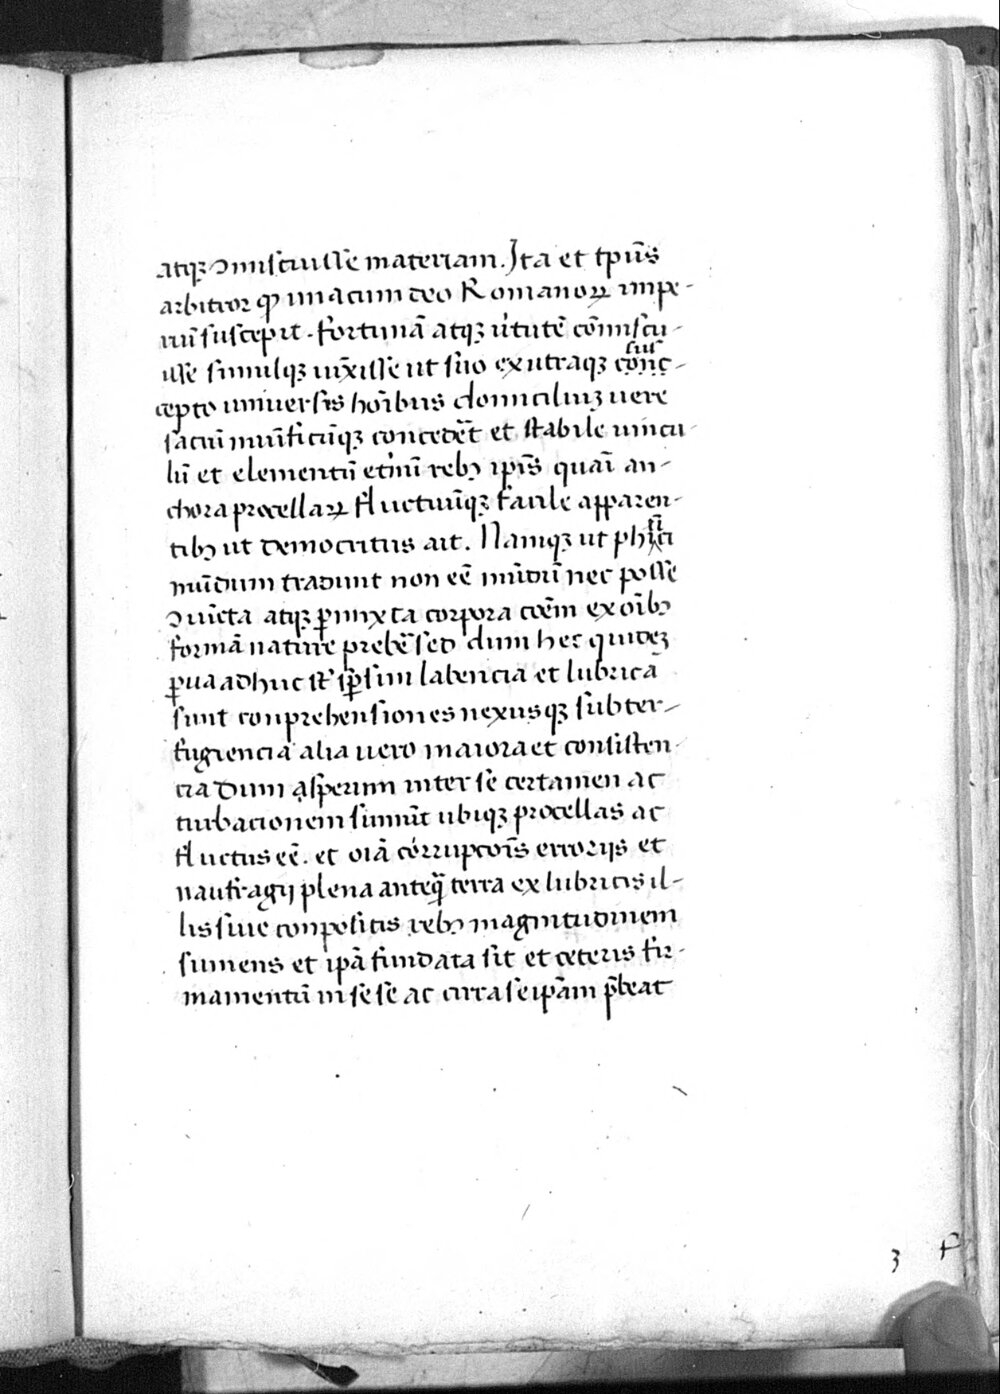 atqꝫ ↄmiscuisse materiam. Ita et tp̄us
arbitror ꝙ una cum deo Romanoꝝ impe-
riū suscepit. fortunā atqꝫ v́tutē cōmiscu-
isse simulqꝫ vīxisse ut suo ex utraqꝫ conc-
sus
cepto universis hoībus domiciliuꝫ vere
sacrū munificūqꝫ concedēt et stabile vincu-
lū et elementū et́nū rebꝫ ip̄is quaī an-
chora procellaꝝ fluctuūqꝫ facile apparen-
tibꝫ ut democritus ait. Namqꝫ ut phici
sī
mūdum tradunt non eē mūdū nec posse
ↄuīcta atqꝫ ꝑmixta corpora coēm ex oībꝫ
formā nature prebē sed dum hec quideꝫ
ꝑva adhuc st̄ sꝑsim labencia et lubrica
sunt conprehensiones nexusqꝫ subter-
fugiencia alia vero maiora et consisten-
cia dum asperum inter se certamen ac
turbacionem sumūt ubiqꝫ procellas ac
fluctus eē. et oīa corrupcoīs erroriis et
naufragij plena anteq̄ terra ex lubricis il-
lis sive conpositis rebꝫ magnitudinem
sumens et ipā fundata sit et ceteris fir-
mamentū in sese ac circa seipām p̄beat
3 f